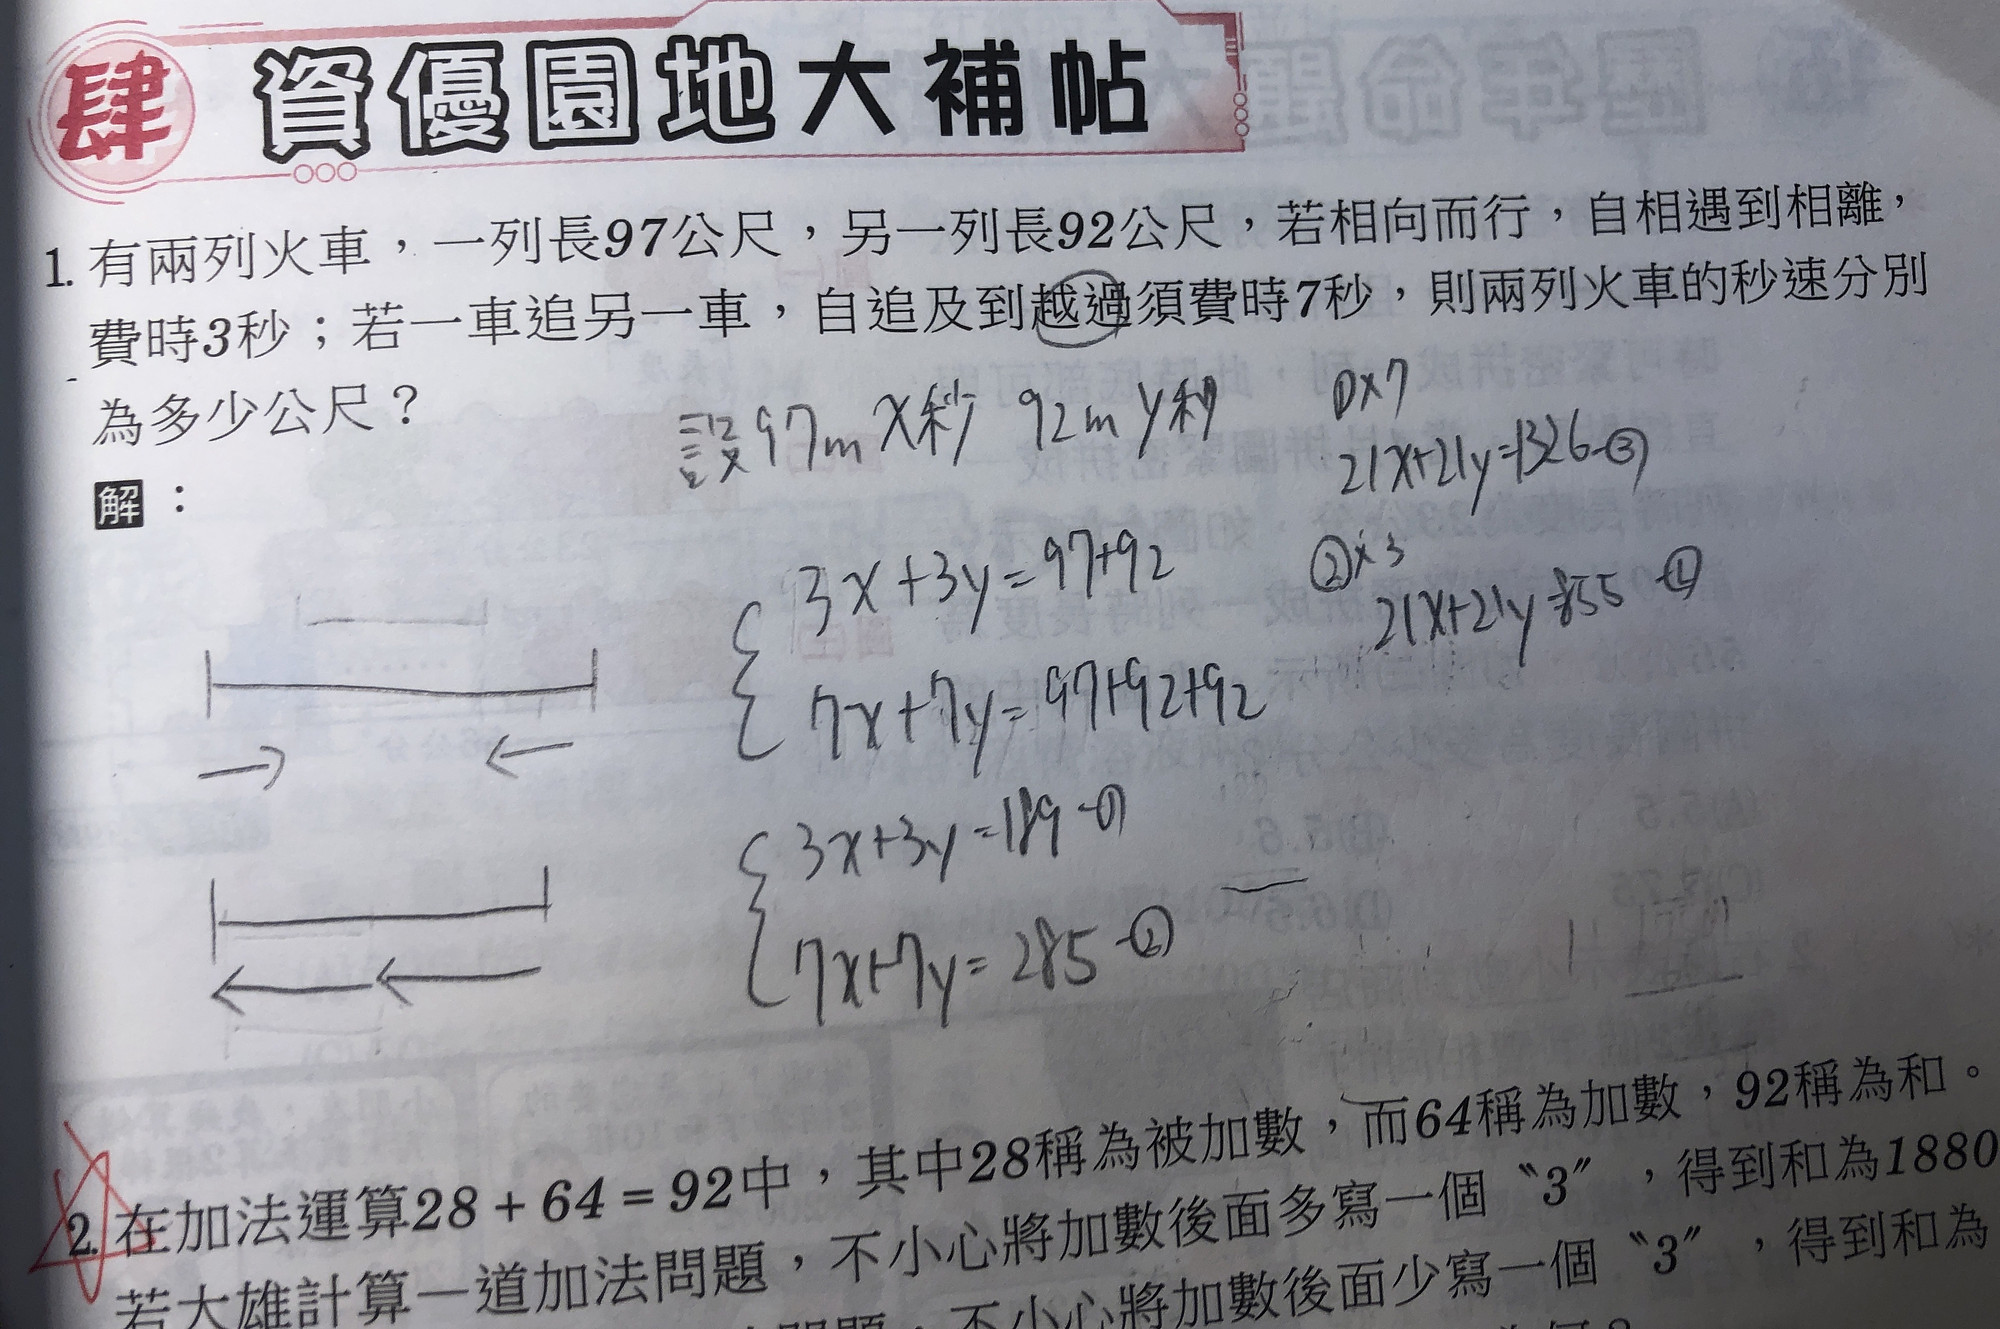 肆 資優園地大補帖
1. 有兩列火車，一列長97公尺，另一列長92公尺，若相向而行，自相遇到相離，
費時3秒；若一車追另一車，自追及到越過須費時7秒，則兩列火車的秒速分別
為多少公尺？
設97m x秒 92m y秒
①×7
21x+21y=1326-③
解：
3x+3y=97+92
②×3
21x+21y=855-④
7x+7y=97+92+92
3x+3y=189-①
7x+7y=285-②
2. 在加法運算28+64=92中，其中28稱為被加數，而64稱為加數，92稱為和。
若大雄計算一道加法問題，不小心將加數後面多寫一個〝3〞，得到和為1880
問題，不小心將加數後面少寫一個〝3〞，得到和為